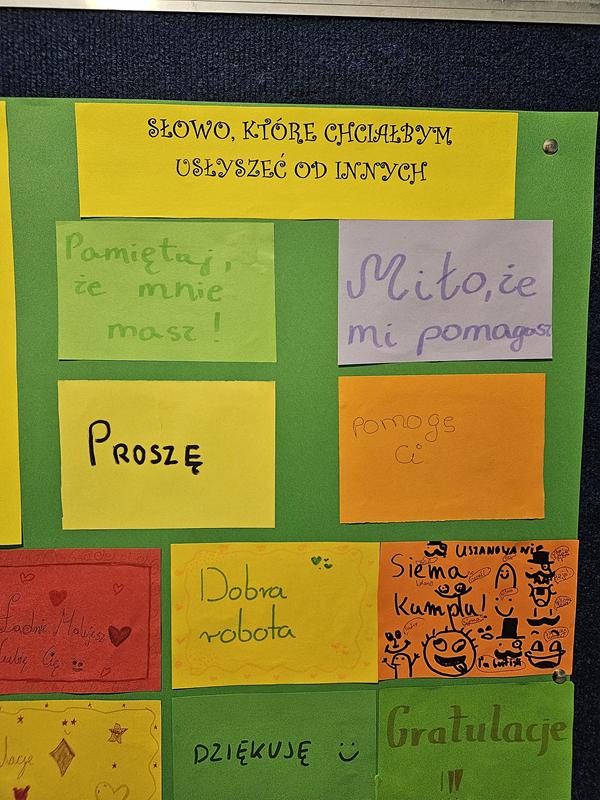 SŁOWO, KTÓRE CHCIAŁBYM
USŁYSZEĆ OD INNYCH
Pamiętaj,
że mnie
masz!
Miło, że
mi pomagasz
PROSZĘ
pomogę
Ci
Ładnie Malujesz
Lubię Cię
Dobra
robota
USZANOWANIE
Siema
Kumplu!
DZIĘKUJĘ
Gratulacje
!!!